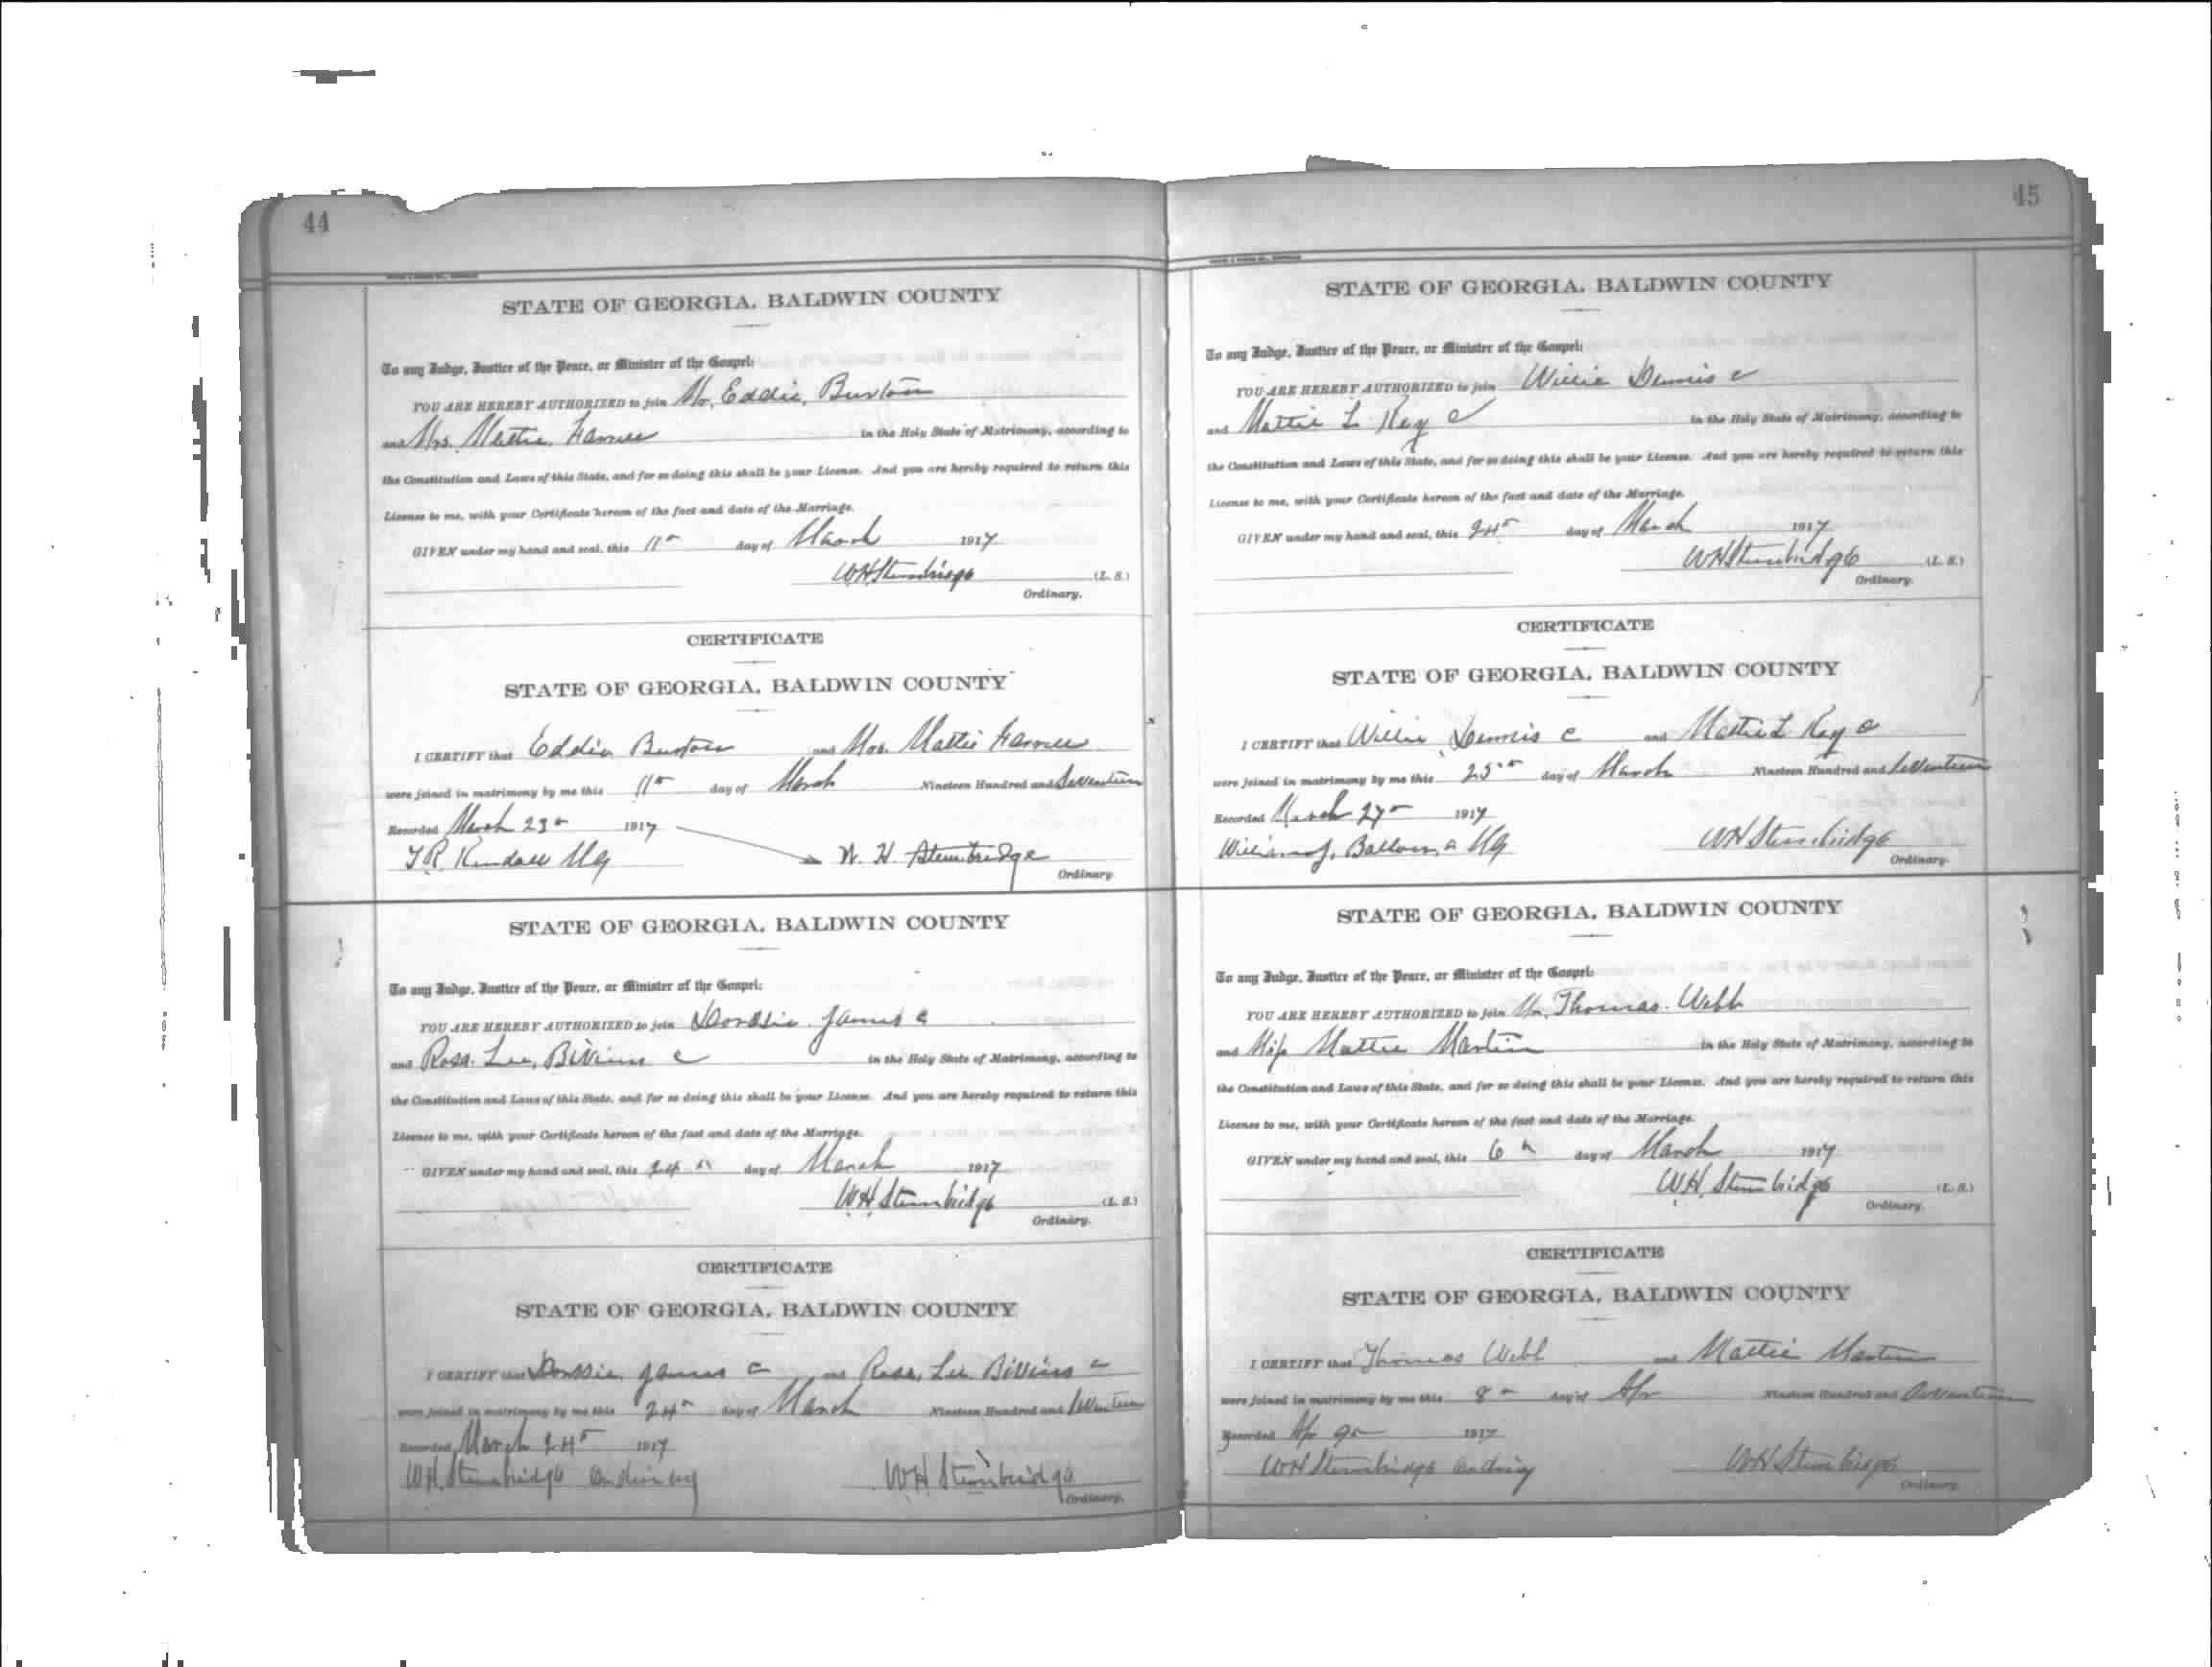 44
STATE OF GEORGIA, BALDWIN COUNTY
To any Judge, Justice of the Peace, or Minister of the Gospel:
YOU ARE HEREBY AUTHORIZED to join Mr. Eddie, Burton
and Mrs. Mattie, in the Holy State of Matrimony, according to
the Constitution and Laws of this State, and for so doing this shall be your License. And you are hereby required to return this
License to me, with your Certificate hereon of the fact and date of the Marriage.
GIVEN under my hand and seal, this 11th day of March 1917
WH Stembridge (L. S.)
Ordinary.
CERTIFICATE
STATE OF GEORGIA, BALDWIN COUNTY
I CERTIFY that Eddie Burton and Mrs. Mattie
were joined in matrimony by me this 11th day of March Nineteen Hundred and Seventeen
Recorded March 23th 1917
T.R. Kendall MG W. H. Stembridge
Ordinary
STATE OF GEORGIA, BALDWIN COUNTY
To any Judge, Justice of the Peace, or Minister of the Gospel:
YOU ARE HEREBY AUTHORIZED to join James c
and Rosa. Lee, Bivins c in the Holy State of Matrimony, according to
the Constitution and Laws of this State, and for so doing this shall be your License. And you are hereby required to return this
License to me, with your Certificate hereon of the fact and date of the Marriage.
GIVEN under my hand and seal, this 24 th day of March 1917
W.H. Stembridge (L. S.)
Ordinary.
CERTIFICATE
STATE OF GEORGIA, BALDWIN COUNTY
I CERTIFY that James c and Rosa, Lee Bivins c
were joined in matrimony by me this 24th day of March Nineteen Hundred and Seventeen
Recorded March 24th 1917
W.H. Stembridge Ordinary W.H. Stembridge
Ordinary.
45
STATE OF GEORGIA, BALDWIN COUNTY
To any Judge, Justice of the Peace, or Minister of the Gospel:
YOU ARE HEREBY AUTHORIZED to join Willie Dennis c
and Mattie L. Key c in the Holy State of Matrimony, according to
the Constitution and Laws of this State, and for so doing this shall be your License. And you are hereby required to return this
License to me, with your Certificate hereon of the fact and date of the Marriage.
GIVEN under my hand and seal, this 24th day of March 1917
WH Stembridge (L. S.)
Ordinary.
CERTIFICATE
STATE OF GEORGIA, BALDWIN COUNTY
I CERTIFY that Willie Dennis c and Mattie L Key c
were joined in matrimony by me this 25th day of March Nineteen Hundred and Seventeen
Recorded March 27th 1917
MG WH Stembridge
Ordinary.
STATE OF GEORGIA, BALDWIN COUNTY
To any Judge, Justice of the Peace, or Minister of the Gospel:
YOU ARE HEREBY AUTHORIZED to join Mr. Thomas. Webb
and Miss Mattie Martin in the Holy State of Matrimony, according to
the Constitution and Laws of this State, and for so doing this shall be your License. And you are hereby required to return this
License to me, with your Certificate hereon of the fact and date of the Marriage.
GIVEN under my hand and seal, this 6 th day of March 1917
W.H. Stembridge (L. S.)
Ordinary.
CERTIFICATE
STATE OF GEORGIA, BALDWIN COUNTY
I CERTIFY that Thomas Webb and Mattie Martin
were joined in matrimony by me this 8th day of Apr Nineteen Hundred and Seventeen
Recorded Apr 9th 1917
WH Stembridge Ordinary WH Stembridge
Ordinary